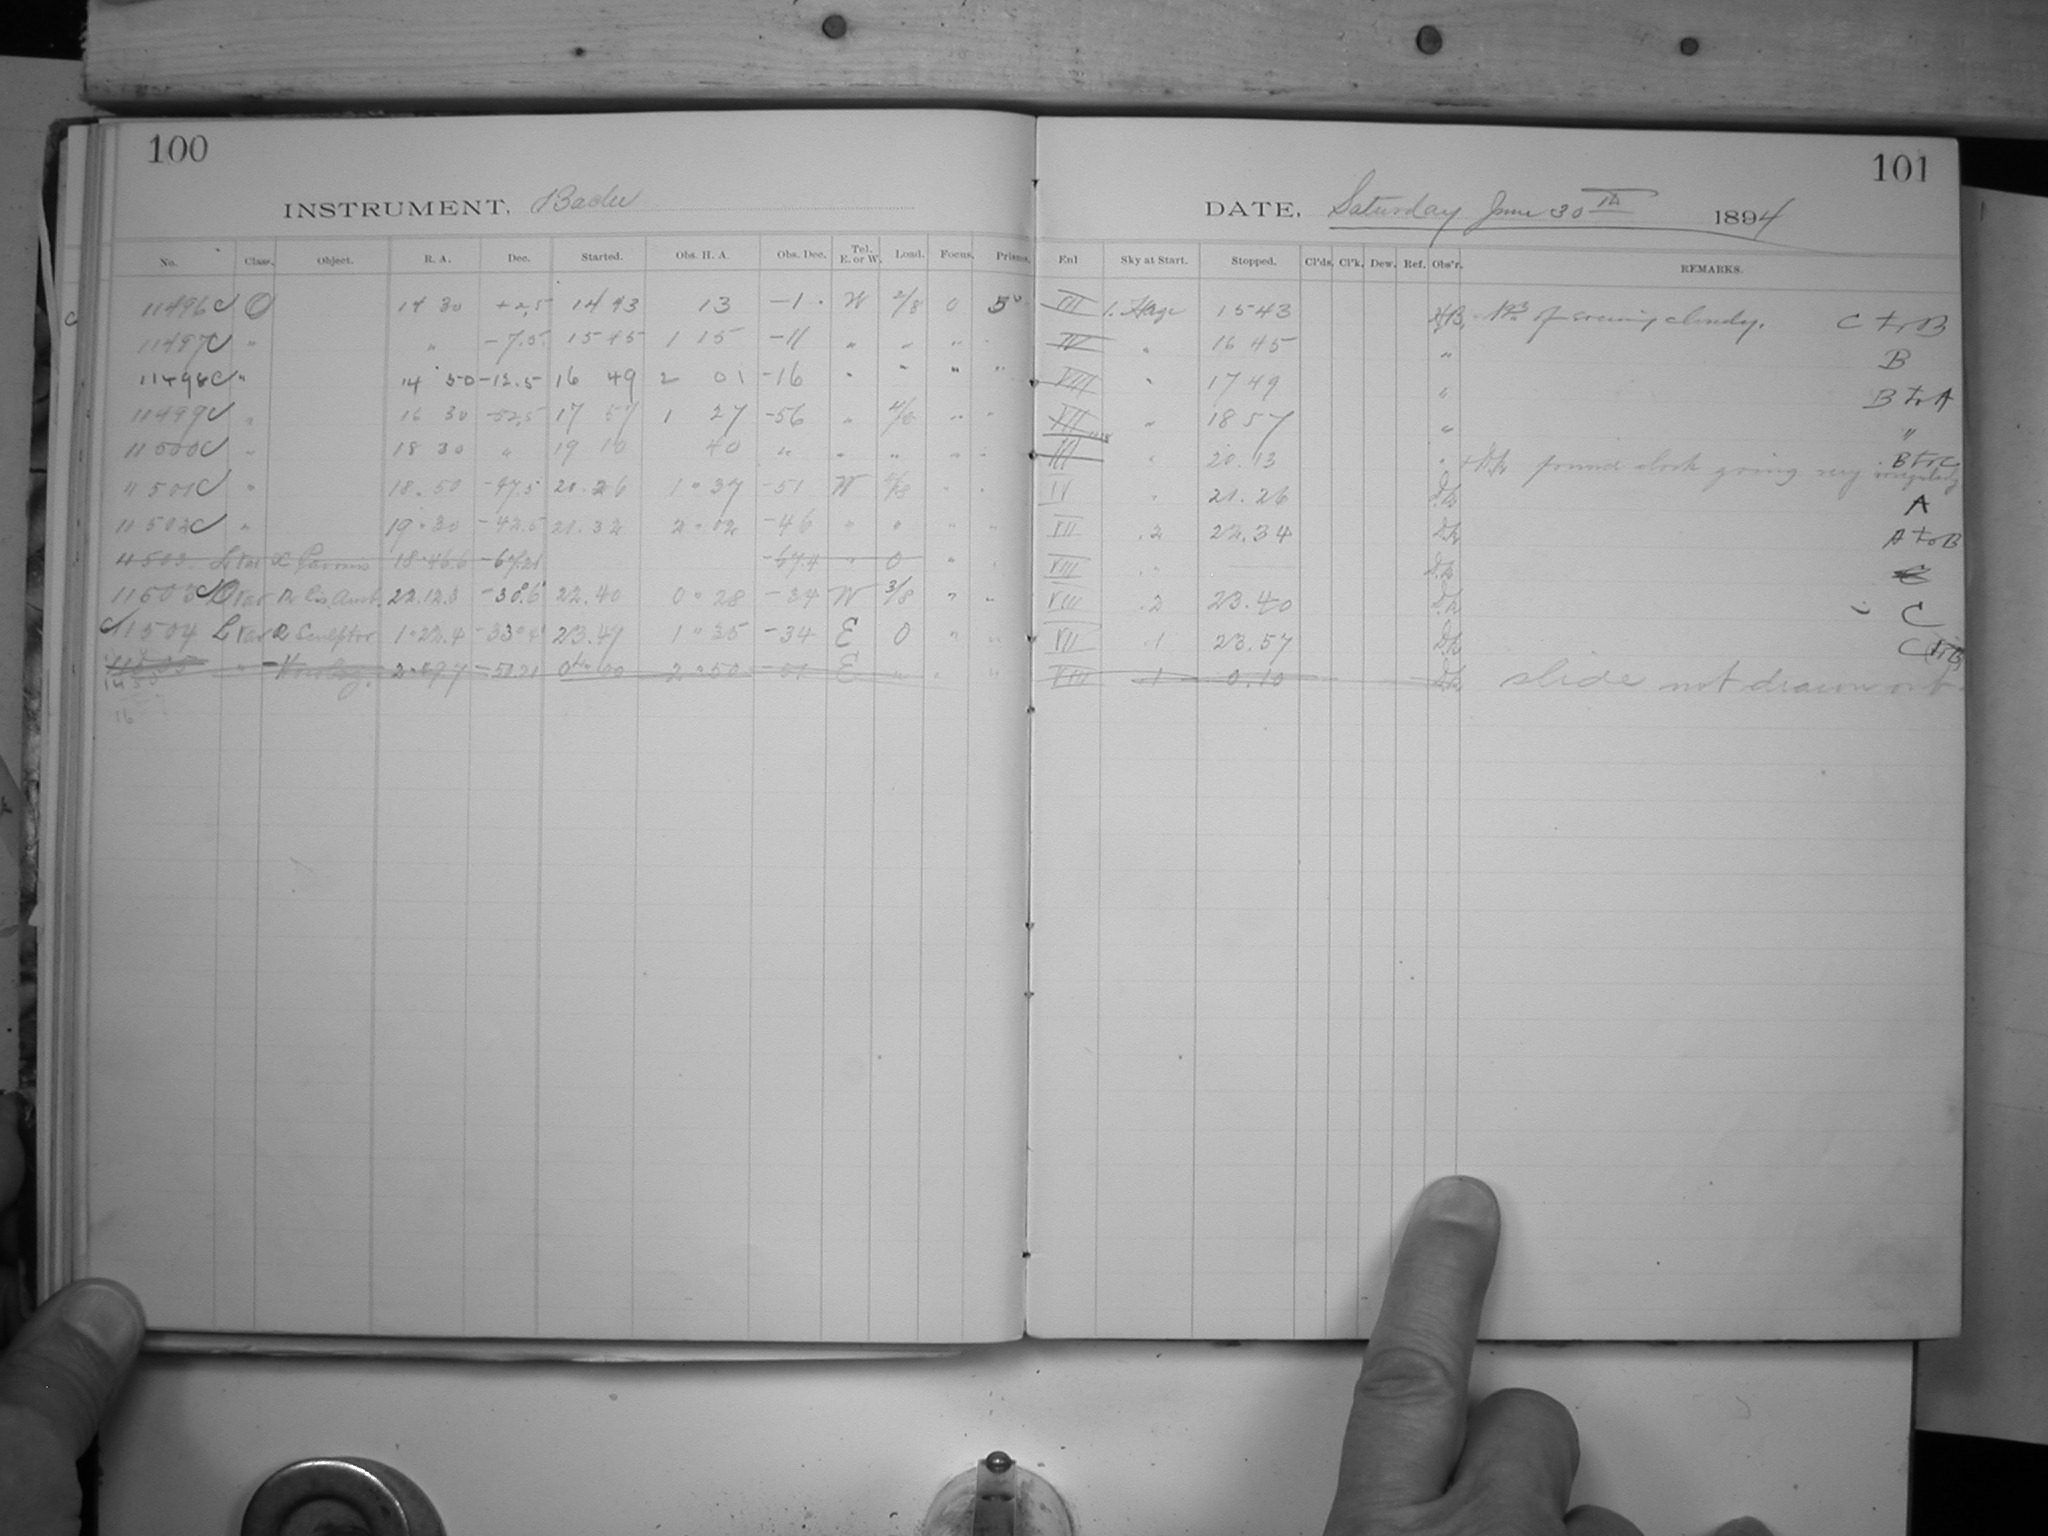 100
INSTRUMENT,
No. Class. Object. R. A. Dec. Started. Obs. H. A. Obs. Dec. Tel. E. or W. Load. Focus. Prisms.
11496 C O 14 30 +2,5 14 43 13 -1 W 2/8 0 5
11497 C " " -7.5 15 45 1 15 -11 " " "
11498 C " 14 50 -12.5 16 49 2 01 -16 " " " "
11499 C " 16 30 -52,5 17 57 1 27 -56 " " "
11500 C " 18 30 " 19 10 40 " " " " "
11501 C " 18.50 -47.5 20.26 1 37 -51 W " "
11502 C " 19 30 -42.5 21.32 2 02 -46 " " " "
11503 L Var 18 46.6 -67.4 " 0 "
11503 C Var 22.12.3 -30.6 22.40 0 28 -34 W 3/8 " "
C 11504 L Var R Sculptor 1 22.4 -33 23.49 1 35 -34 E 0 " "
11505 " Horolog. 2 50 -51 E "
16
101
DATE, Saturday June 30th 1894
Enl Sky at Start. Stopped. Cl'ds. Cl'k. Dew. Ref. Obs'r. REMARKS.
III 1. Haze 15 43 of evening cloudy. C to B
IV " 16 45 " B
VIII " 17 49 " B to A
VII " 18 57 " "
III " 20.13 " found clock going very irregularly B to C
IV " 21.26 A
VII .2 22.34 A to B
VIII
VIII .2 23.40 C
VII .1 23.57 C
VIII .1 0.10 slide not drawn out